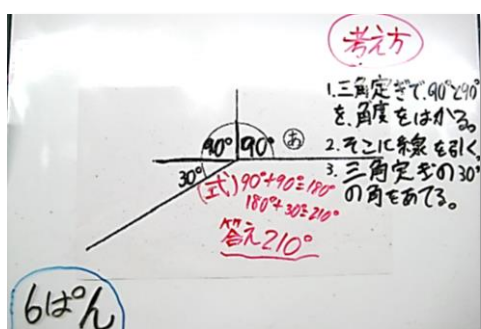 考え方
1.三角定ぎで、90°と90°
を、角度をはかる。
2.そこに線を引く。
3.三角定ぎの30°
の角をあてる。
90° 90° あ
30°
(式)90°+90°=180°
180°+30°=210°
答え210°
6ぱん